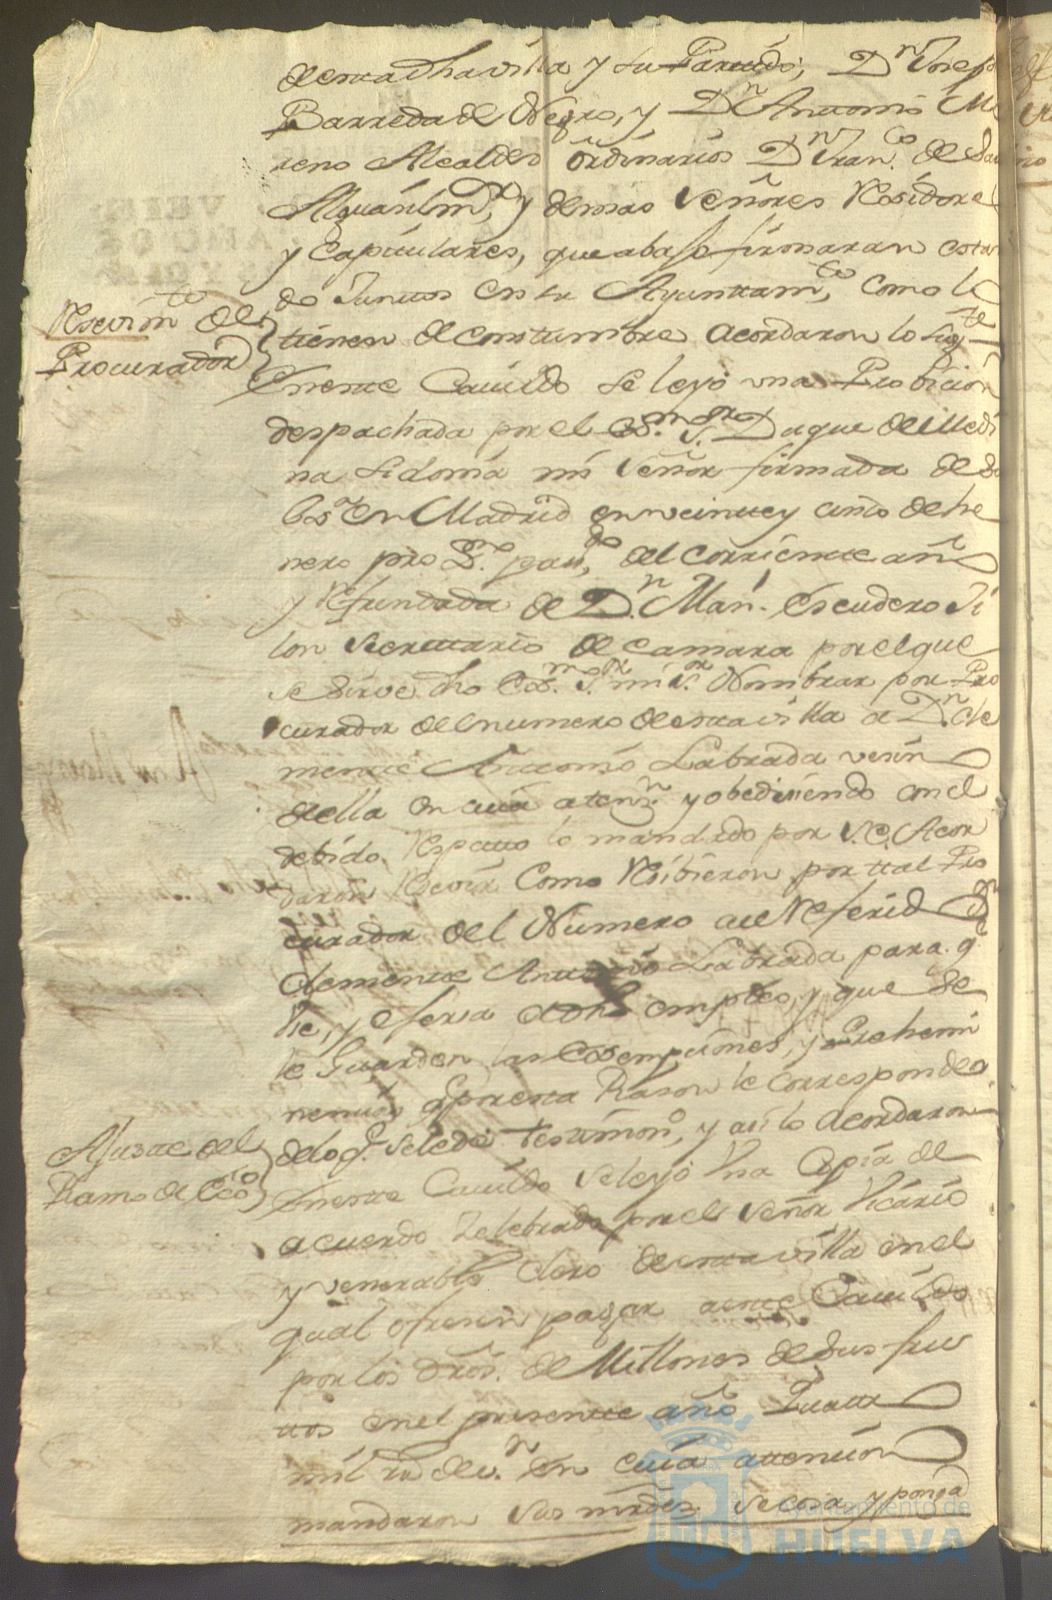 de esta dha villa y su Partido, Dn Josep
Barreda el Negro, y Dn Antonio Mo
reno Alcaldes ordinarios Dn Franco de
Alguasil mr, y demas Señores Residores
y Capitulares, que abajo firmaran estan
do Juntos en su Ayuntamto, como lo
tienen de constumbre acordaron lo sigte
Resevimto de
Procurador
En este Cavildo se leyó una Probicion
despachada por el Exmo Sr Duque de Medi
na Sidonia mi Señor firmada de Su
Exa en Madrid en veinte y cinto de he
nero proo pasdo, del corriente año
y Refrendada de Dn Man. Escudero Ji
lon Secretario de camara por el que
se sirve dho Exmo Sr mi Sr Nombrar por Pro
curador del numero de esta villa a Dn Cle
mente Antonio Labrada vesin
de ella en cuia atenn y obedisiendo con el
debido Respecto lo mandado por S.E. Acor
daron Resevir como Resibieron por ttal Pro
curador del Numero al Referido Dn
Clemente Antonio Labrada para q
use, y ejersa dho empleo, y que se
le Guarden las Exsempciones, y Prehemi
nencias q por esta Rason le corresponde
de lo q. se le de testimono, y asi lo acordaron
Ajuste del
Ramo de Ecco
En este Cavildo se leyó Una Copia de
acuerdo zelebrado por el Señor Vicario
y venerable clero de esta villa en el
qual ofresen pagar a este Cavildo
por los dros. de Millones de sus fru
tos en el presente año Quatro
mil rs de vn En cuia attencion
mandaron sus mrdes, se cosa, y ponga
Ayuntamiento de
HUELVA